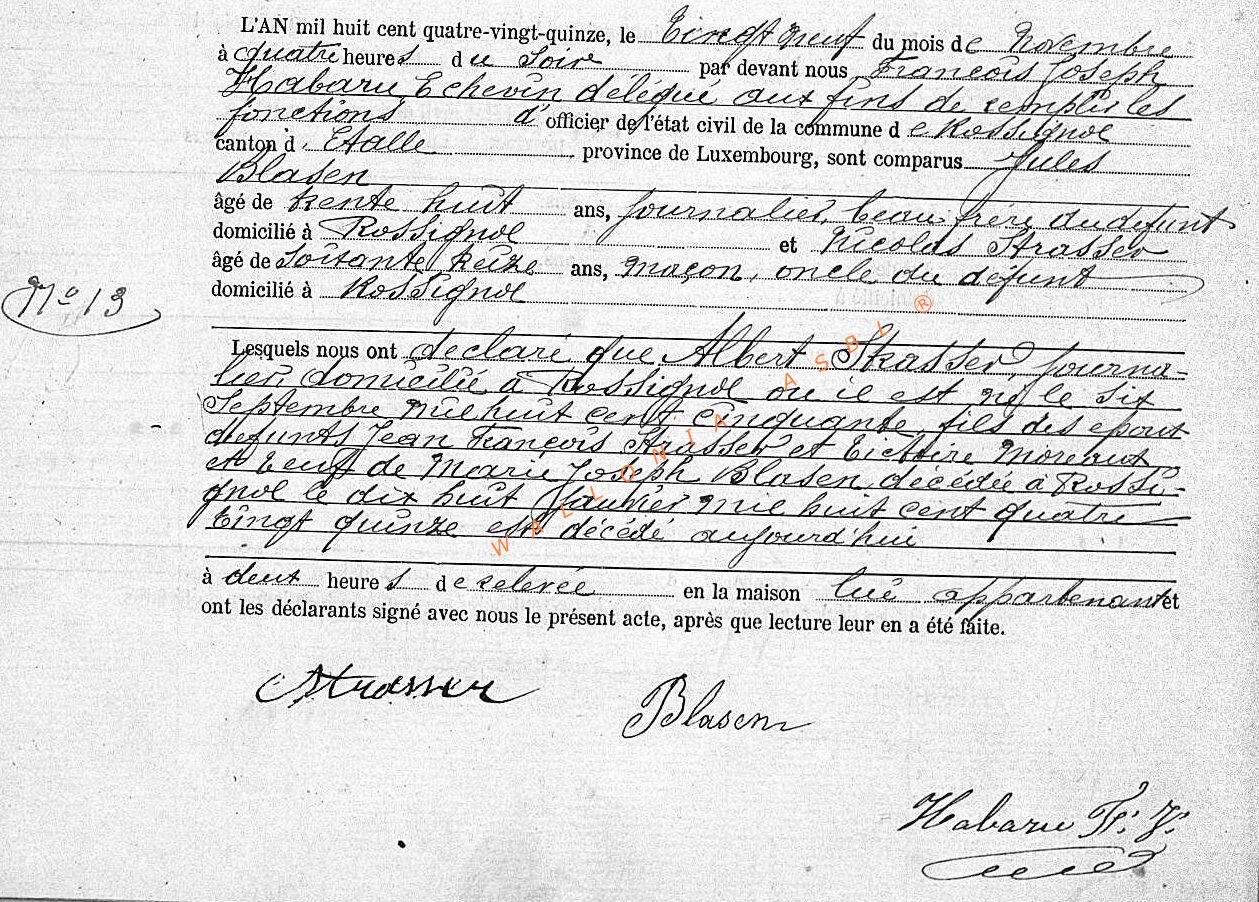 L'AN mil huit cent quatre-vingt-quinze, le Vingt neuf du mois de Novembre
à quatre heures du soir par devant nous François Joseph
Habaru Echevin délégué aux fins de remplir les
fonctions d'officier de l'état civil de la commune de Rossignol
canton d'Etalle province de Luxembourg, sont comparus Jules
Blasen
âgé de trente huit ans, journalier, beau-frère du défunt
domicilié à Rossignol et Nicolas Strasser
âgé de soixante treize ans, maçon, oncle du défunt
domicilié à Rossignol
N° 13
Lesquels nous ont déclaré que Albert Strasser, journa-
lier, domicilié à Rossignol où il est né le six
Septembre mil huit cent cinquante, fils des époux
défunts Jean François Strasser et Victoire
et veuf de Marie Joseph Blasen décédée à Rossi-
gnol le dix huit Janvier mil huit cent quatre
vingt quinze est décédé aujourd'hui
à deux heures de relevée en la maison lui appartenant et
ont les déclarants signé avec nous le présent acte, après que lecture leur en a été faite.
WALLONIA ASBL ®
NStrasser
Blasen
Habaru Fs. J.